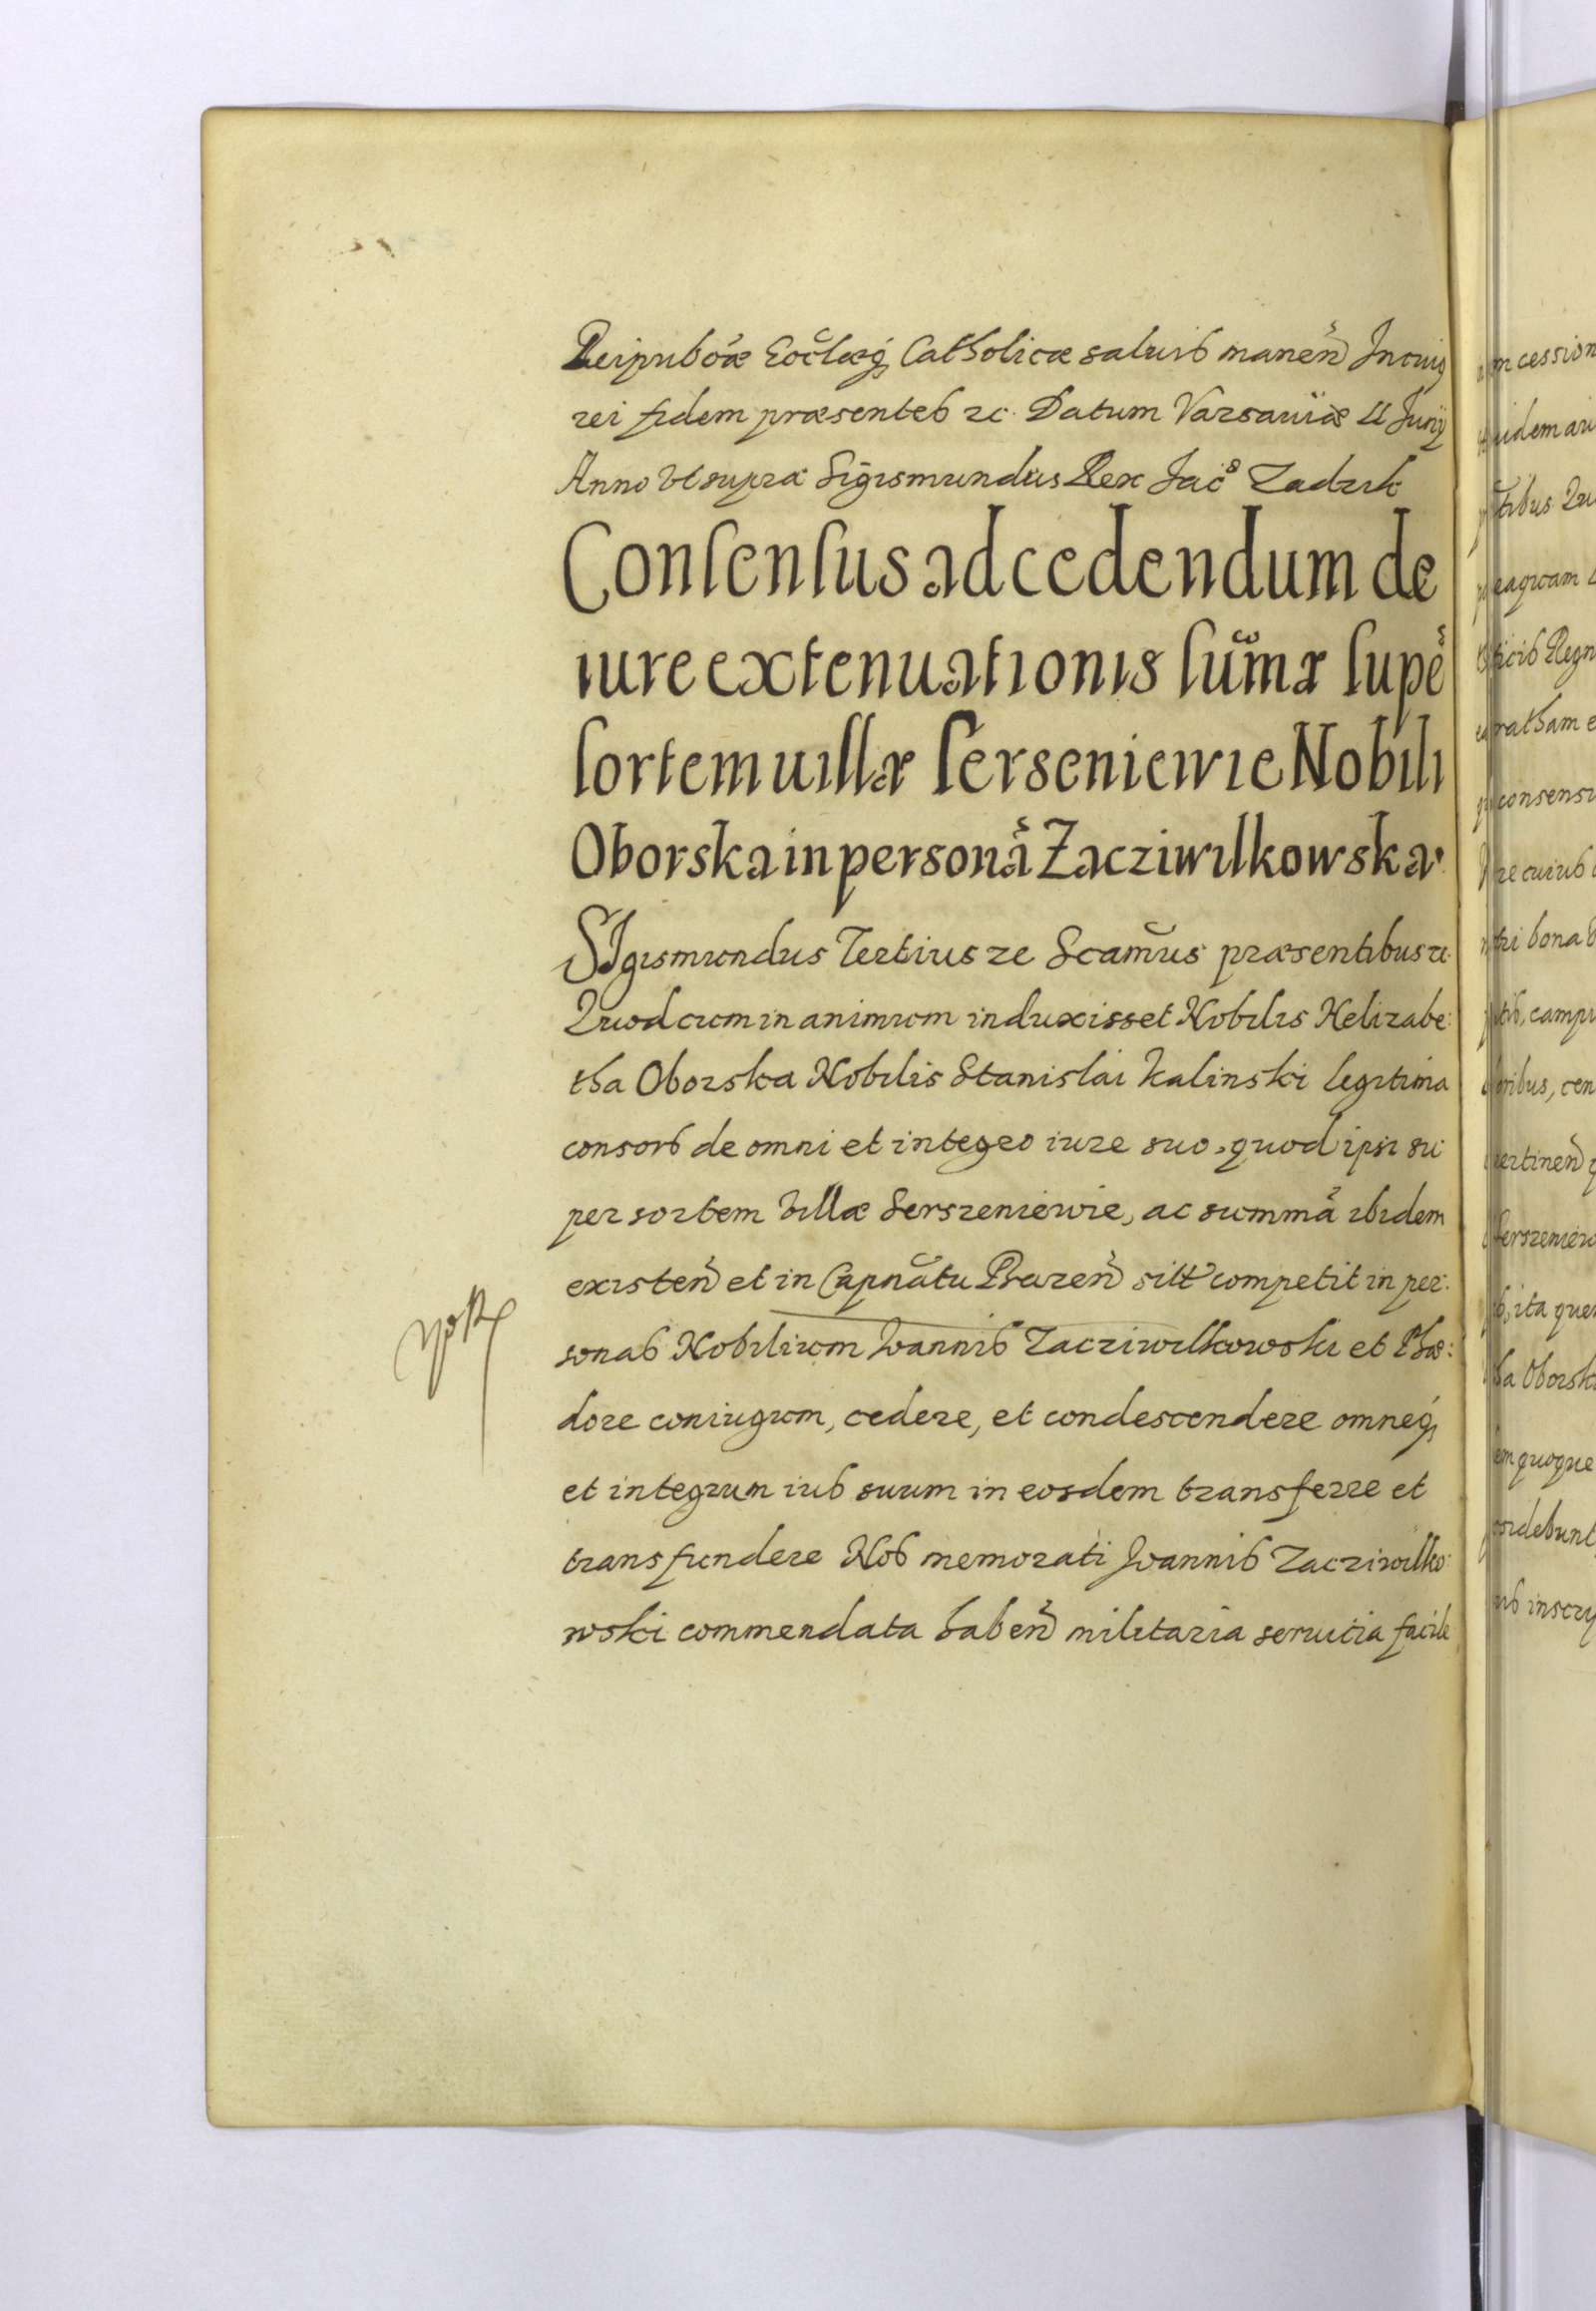 Reipubcæ Ecclæq, Catholicæ saluis manen Incuig
rei fidem præsentes rc. Datum Varsauiæ II Junij
Anno vt supra Sigismundus Rex Jac⁹ Zadzik
Consensus ad cedendum de
iure extenuationis summæ supe
sortem uillæ Serseniewie Nobili
Oborska in persona Zacziwilkowskæ
SIgismundus Tertius rc Scamus præsentibus rc.
Quod cum in animum induxisset Nobilis Helizabe:
tha Oborska Nobilis Stanislai Kalinski legitima
consors de omni et integro iure suo, quod ipsi su
per sortem villæ Serszeniewie, ac summa ibidem
existen et in Capnatu Brazen sitt competit in per:
sonas Nobilium Ioannis Zacziwilkowski et Phæ:
dore coniugum, cedere, et condescendere omneq,
et integrum ius suum in eosdem transferre et
transfundere Nos memorati Ioannis Zacziwilko:
wski commendata haben militaria seruitia facile
m cession
uidem
tibus
eaqvam
ficis Regn
ratham e
consens
re cuius
tri bona
campi
oribus, cen
ertinen
Serszeniew
ita que
ha Oborsk
em quoque
sidebunt
is inscry